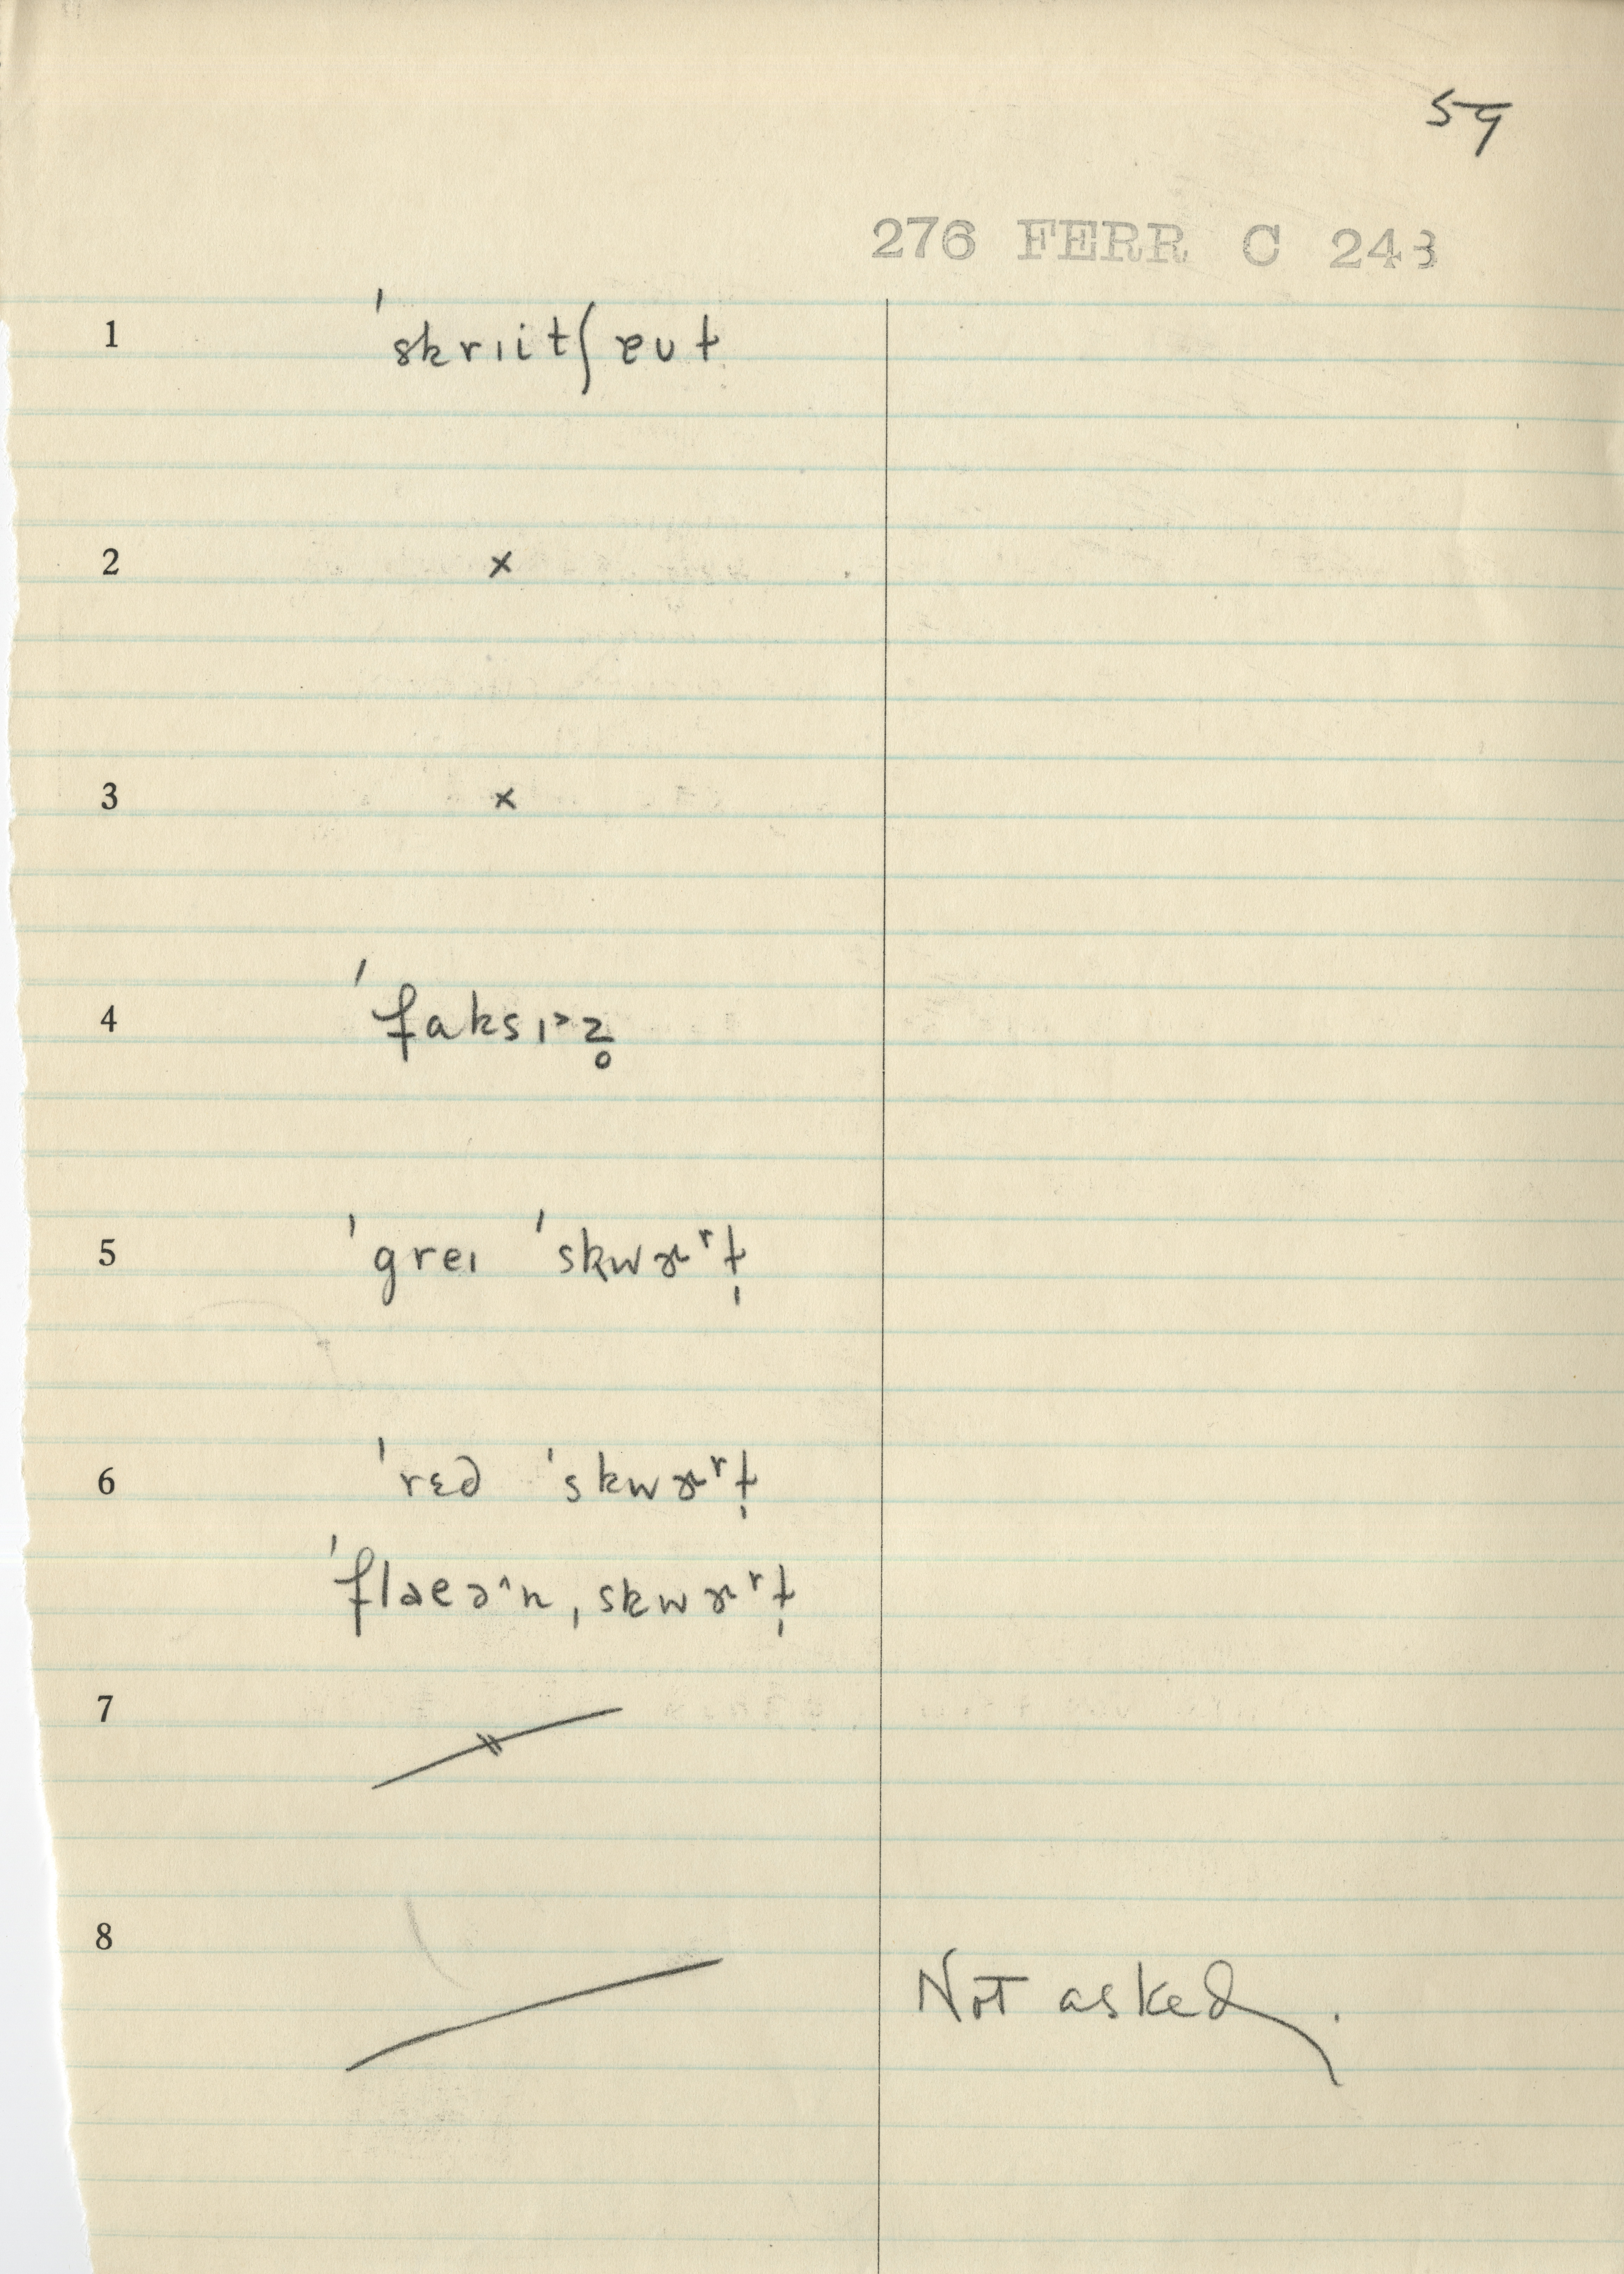 59
276 FERR C 243
1 ˈskrɪitʃɐʊɫ
2 x
3 x
4 ˈfaksɪ˃z̥
5 ˈgreɪ ˈskwɝʳɫ̩
6 ˈrɛd ˈskwɝʳɫ̩
ˈflaeə^n ˌskwɝʳɫ̩
7
8 Not asked.